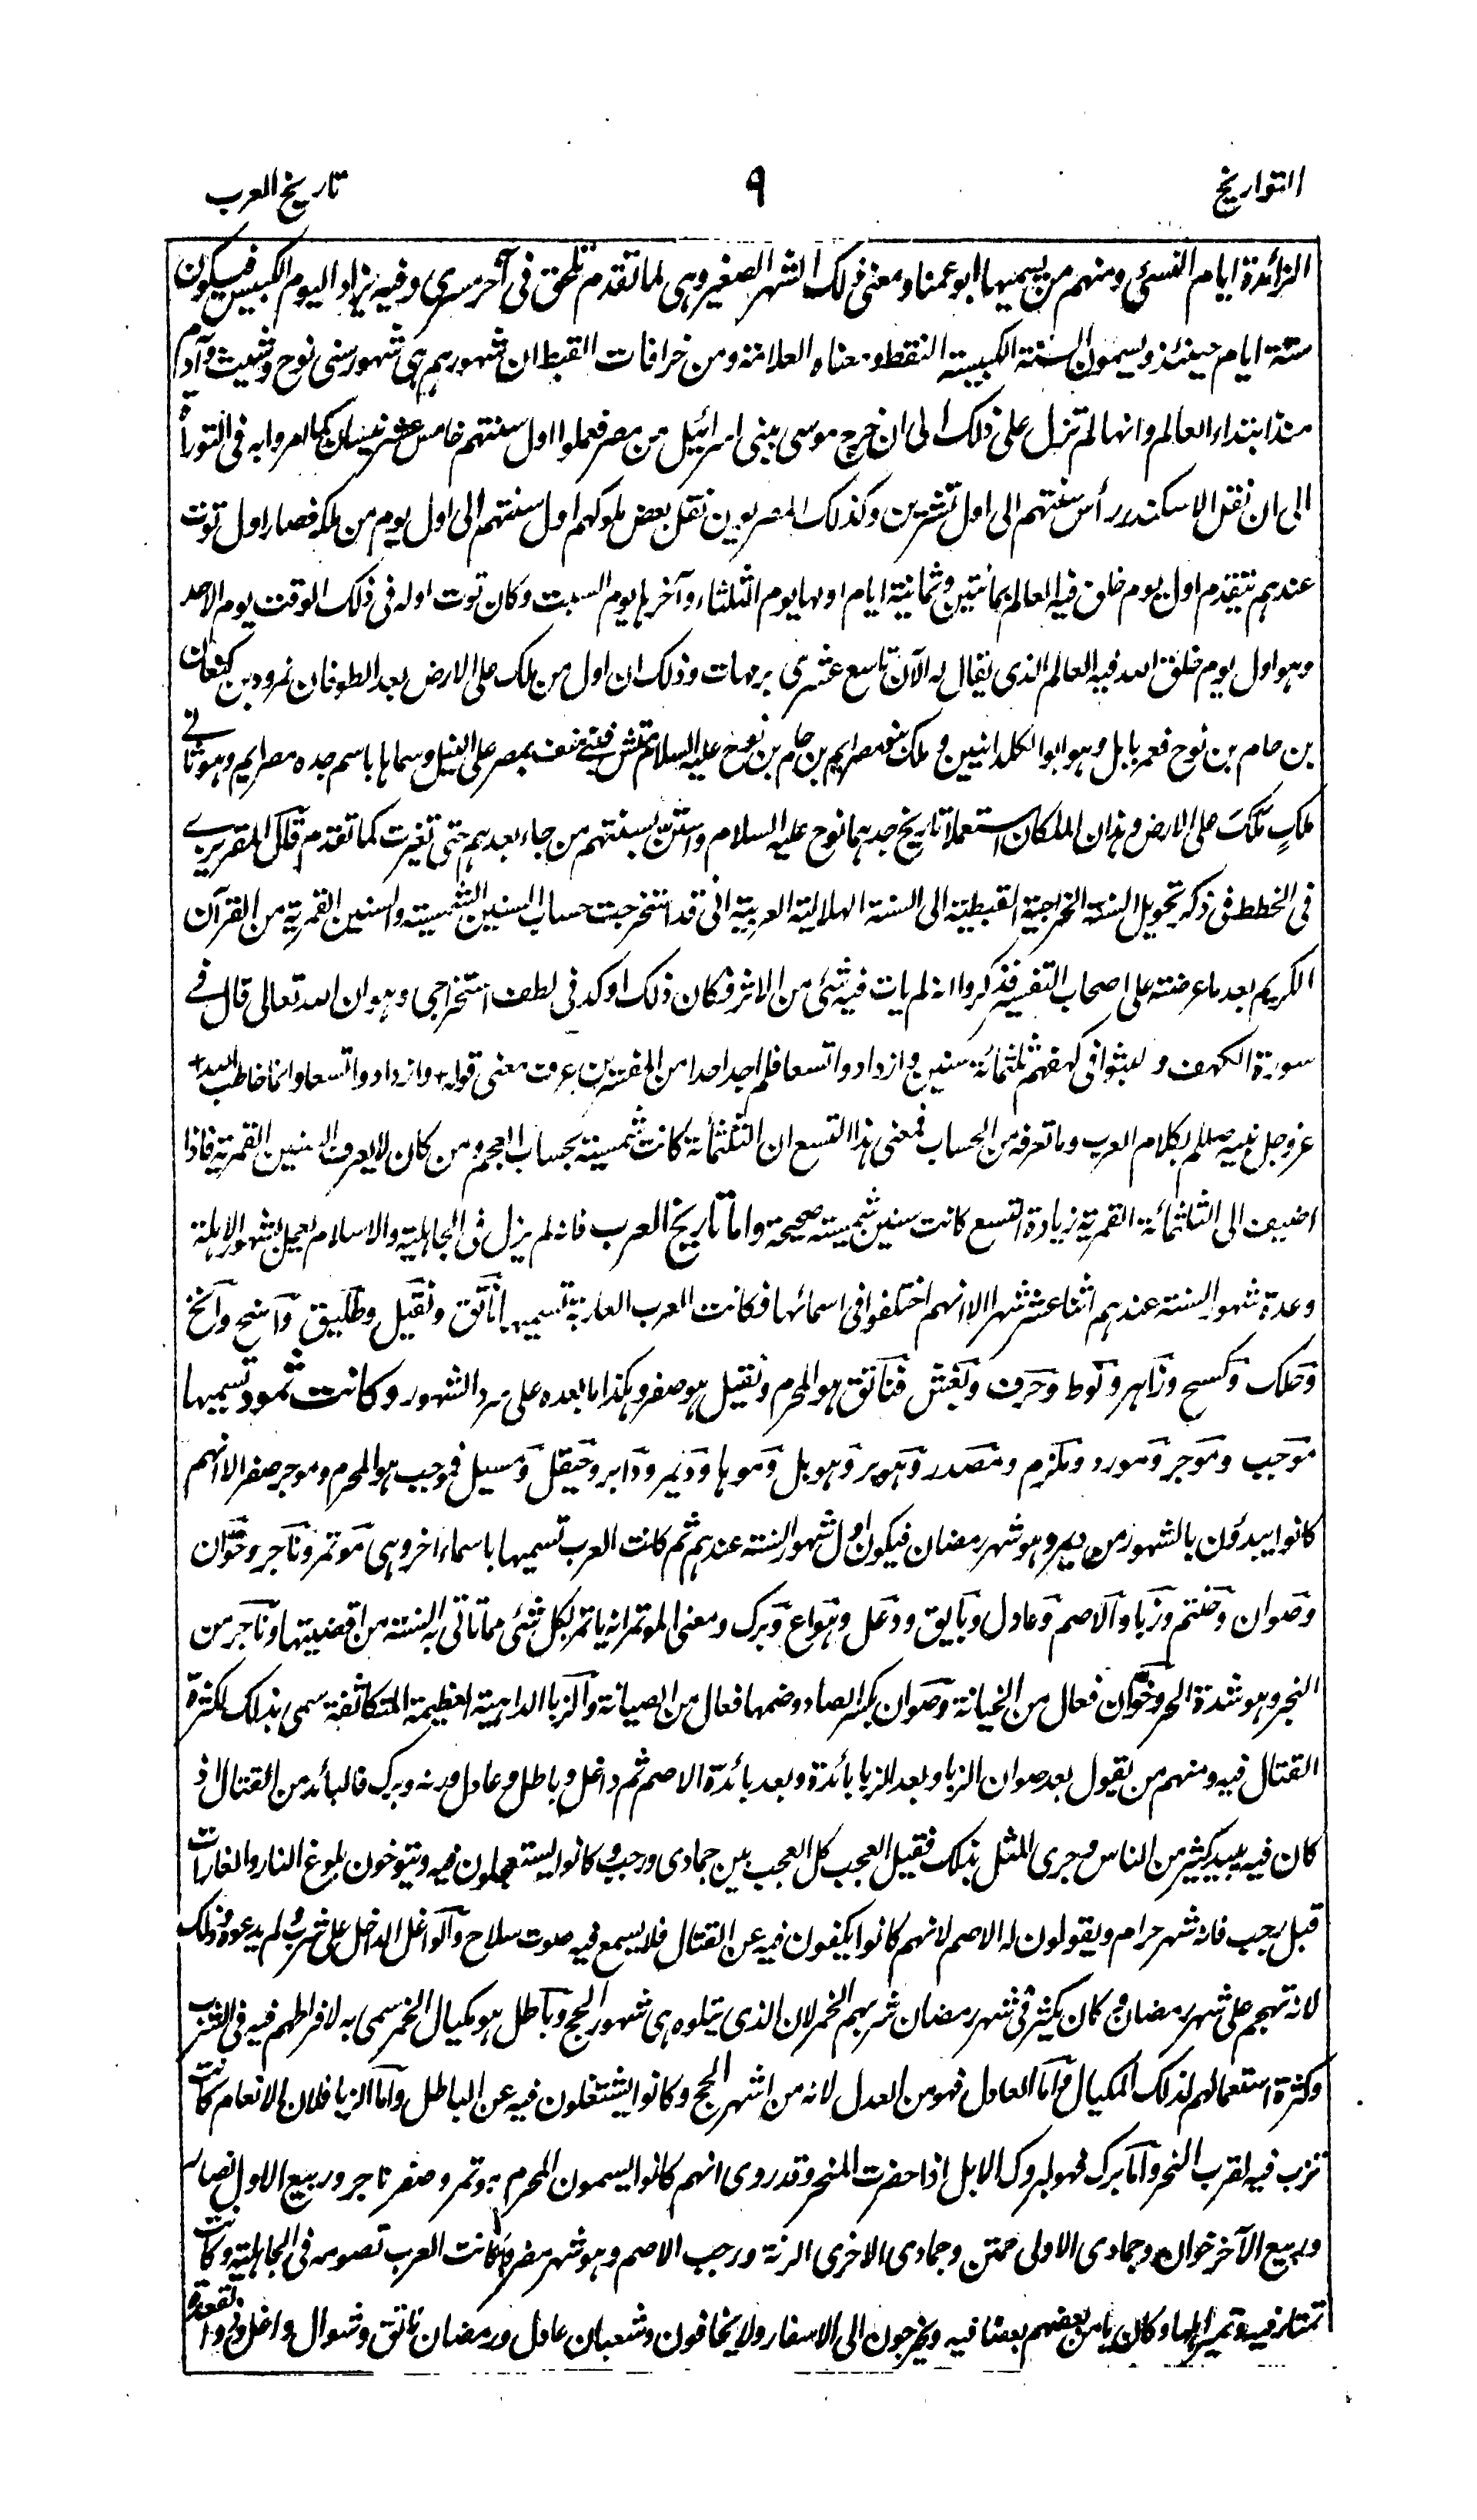 التواريخ ٩ تاريخ العرب
الزائدة ايام النسئ ومنهم من يسميها ابو عمنا ومعنى ذلك الشهر الصغير وهى لما تقدم تلحق فى آخر مسرى وفيه يزاد اليوم الكبيس فيكون
ستة ايام حينئذ ويسمون السنة الكبيسة النقط ومعناه العلامة ومن خرافات القبط ان شهورهم هى شهور سنى نوح وشيث وآدم
منذ ابتداء العالم وانها لم تزل على ذلك الى ان خرج موسى ببنى اسرائيل من مصر فعملوا اول سنتهم خامس عشر نيسان كما امروا به فى التوراة
الى ان نقل الاسكندر رأس سنتهم الى اول تشرين وكذلك المصريون نقل بعض ملوكهم اول سنتهم الى اول يوم من ملكه فصار اول توت
عندهم يتقدم اول يوم خلق فيه العالم بمائتين وثمانية ايام اولها يوم الثلثاء وآخرها يوم السبت وكان توت اوله فى ذلك الوقت يوم الاحد
وهو اول يوم خلق الله فيه العالم الذى يقال له الآن تاسع عشرى برمهات وذلك ان اول من ملك على الارض بعد الطوفان نمرود بن كنعان
بن حام بن نوح فعمر بابل وهو ابو الكلدانيين وملك بنو مصرايم بن حام بن نوح عليه السلام متش فبنى منف بمصر على النيل وسماها باسم جده مصرايم وهو ثانى
ملكٍ ملكَ على الارض وهذان الملكان استعملا تاريخ جدهما نوح عليه السلام واستنّ بسنتهم من جاء بعدهم حتى تغيرت كما تقدم قال المقريزى
فى الخطط فى ذكر تحويل السنة الخراجية القبطية الى السنة الهلالية العربية انى قد استخرجت حساب السنين الشمسية والسنين القمرية من القرآن
الكريم بعد ما عرضته على اصحاب التفسير فذكروا انه لم يات فيه شئ من الاثر فكان ذلك اوكد فى لطف استخراجى وهو ان الله تعالى قال فى
سورة الكهف ولبثوا فى كهفهم ثلثمائة سنين وازدادوا تسعا فلم اجد احدا من المفسرين عرف معنى قوله وازدادوا تسعا وانما خاطب الله
عز وجل نبيه صلعم بكلام العرب وما تعرفه من الحساب فمعنى هذا التسع ان الثلثمائة كانت شمسية بحساب العجم ومن كان لا يعرف السنين القمرية فاذا
اضيف الى الثلثمائة القمرية زيادة التسع كانت سنين شمسية صحيحة واما تاريخ العرب فانه لم يزل فى الجاهلية والاسلام يعمل بشهور الاهلة
وعدة شهور السنة عندهم اثنا عشر شهرا الا انهم اختلفوا فى اسمائها فكانت العرب العاربة تسميها ناتق ونقيل وطليق واسنح وانخ
وحلك وكسح وزاهر ونوط وحرف ويغش فناتق هو المحرم ونقيل هو صفر وهكذا ما بعده على سرد الشهور وكانت ثمود تسميها
موجب وموجر ومورد وملزم ومصدر وهوبر وهوبل وموها وديمر ودابر وحيقل ومسيل فموجب هو المحرم وموجر صفر الا انهم
كانوا يبدؤن بالشهور من ديمر وهو شهر رمضان فيكون اول شهور السنة عندهم ثم كانت العرب تسميها باسماء اخر وهى مؤتمر وناجر وخوان
وصوان وحنتم وزبا والاصم وعادل وبايق ووعل وهواع وبرك ومعنى المؤتمر انه ياتمر بكل شئ مما تاتى به السنة من اقضيتها وناجر من
النجر وهو شدة الحر وخوان فعال من الخيانة وصوان بكسر الصاد وضمها فعال من الصيانة والزبا الداهية العظيمة المتكاثفة سمى بذلك لكثرة
القتال فيه ومنهم من يقول بعد صوان الزبا وبعد الزبا بائدة وبعد بائدة الاصم ثم داغل وباطل وعادل ورنه وبرك فالبائد من القتال اذ
كان فيه يبيد كثير من الناس وجرى المثل بذلك فقيل العجب كل العجب بين جمادى ورجب وكانوا يستعجلون فيه ويتوخون بلوغ الثار والغارات
قبل رجب فانه شهر حرام ويقولون له الاصم لانهم كانوا يكفون فيه عن القتال فلا يسمع فيه صوت سلاح والواغل الداخل على شرب ولم يدعوه وذلك
لانه تهجم على شهر رمضان وكان يكثر فى شهر رمضان شربهم الخمر لان الذى يتلوه هى شهور الحج وباطل هو مكيال الخمر سمى به لافراطهم فيه فى الشرب
وكثرة استعمالهم لذلك المكيال واما العادل فهو من العدل لانه من اشهر الحج وكانوا يشتغلون فيه عن الباطل واما الزبا فلان الانعام كانت
تزب فيه لقرب النحر واما برك فهو لبروك الابل اذا حضرت المنحر وقد روى انهم كانوا يسمون المحرم مؤتمر وصفر ناجر وربيع الاول نصار
وربيع الآخر خوان وجمادى الاولى حمتن وجمادى الاخرى الرنة ورجب الاصم وهو شهر مضر وكانت العرب تصومه فى الجاهلية وكانت
تمتار فيه وتمير اهلها وكان يامن بعضهم بعضا فيه ويخرجون الى الاسفار ولا يخافون وشعبان عادل ورمضان ناتق وشوال واغل وذو القعدة